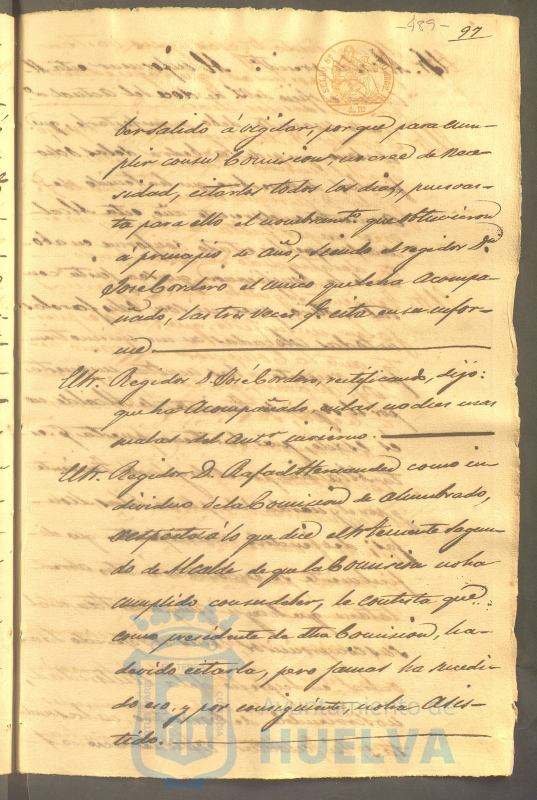 -489-
97
ber salido á vigilar, por que para cum-
plir con su Comision, no cree de nece-
sidad, citarlos todos los dias, pues vas-
ta para ello el nombramto. que obtuvieron
á principio de año, siendo el regidor Dn.
José Cordero el unico que le ha acompa-
ñado, las tres veces qe. cita en su infor-
me.
El Sr. Regidor D. José Cordero, rectificando, dijo:
que ha acompañado, en las noches mas
malas del antr. invierno.
El Sr. Regidor D. Rafael Hernandez como in-
dividuo de la Comision de Alumbrado,
respecto á lo que dice el Sr. Teniente Segun-
do de Alcalde de que la Comision no ha
cumplido con su deber, le contesta que
como presidente de dha Comision, ha
devido citarla, pero jamas ha sucedi-
do eso, y por consiguiente, no ha asis-
tido.
Ayuntamiento de
HUELVA